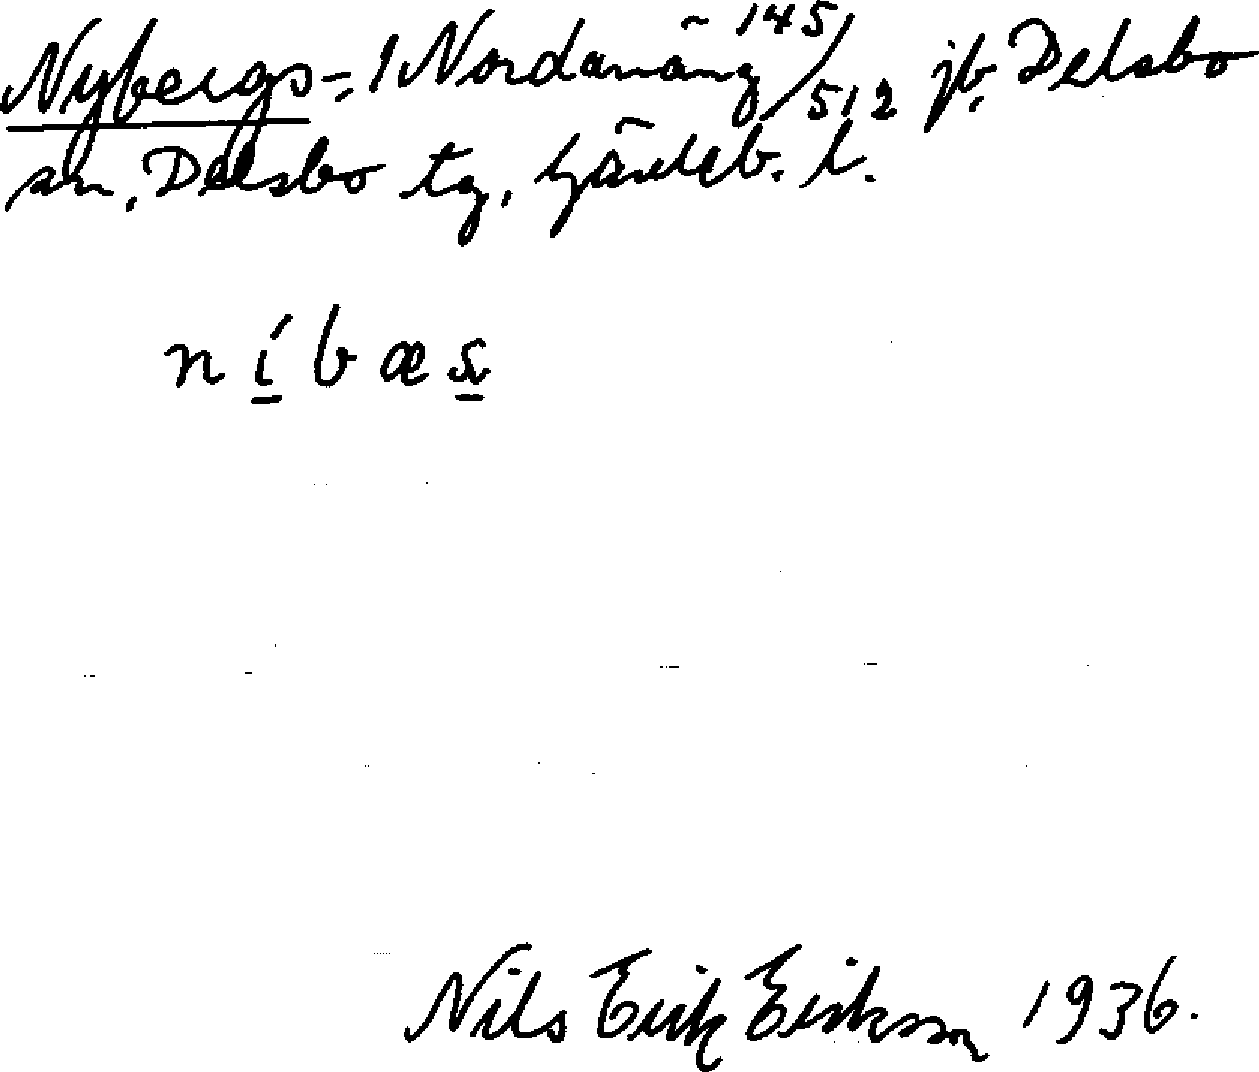 Nybergs-, i Nordanäng 145/512 jb, Delsbo
sn, Delsbo tg, Gävleb. l.
níbæs
Nils Erik Eriksson 1936.